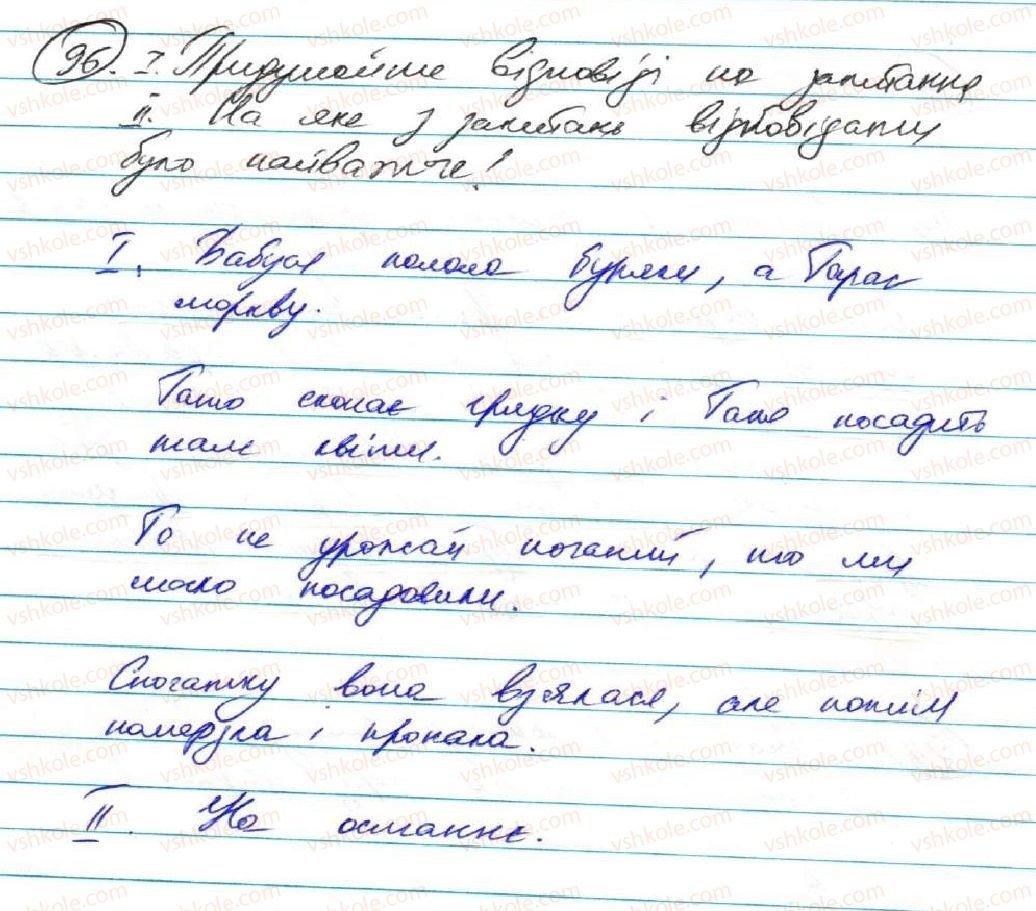 96. I. Придумайте відповіді на запитання
II. На яке з запитань відповідати
було найважче!
I. Бабуся полола буряки, а Тарас
моркву.
Тато скопає грядку і Таня посадить
там квіти.
То не урожай поганий, то ми
мало посадовили.
Спочатку вона взялася, але потім
померзла і пропала.
II. На останнє.